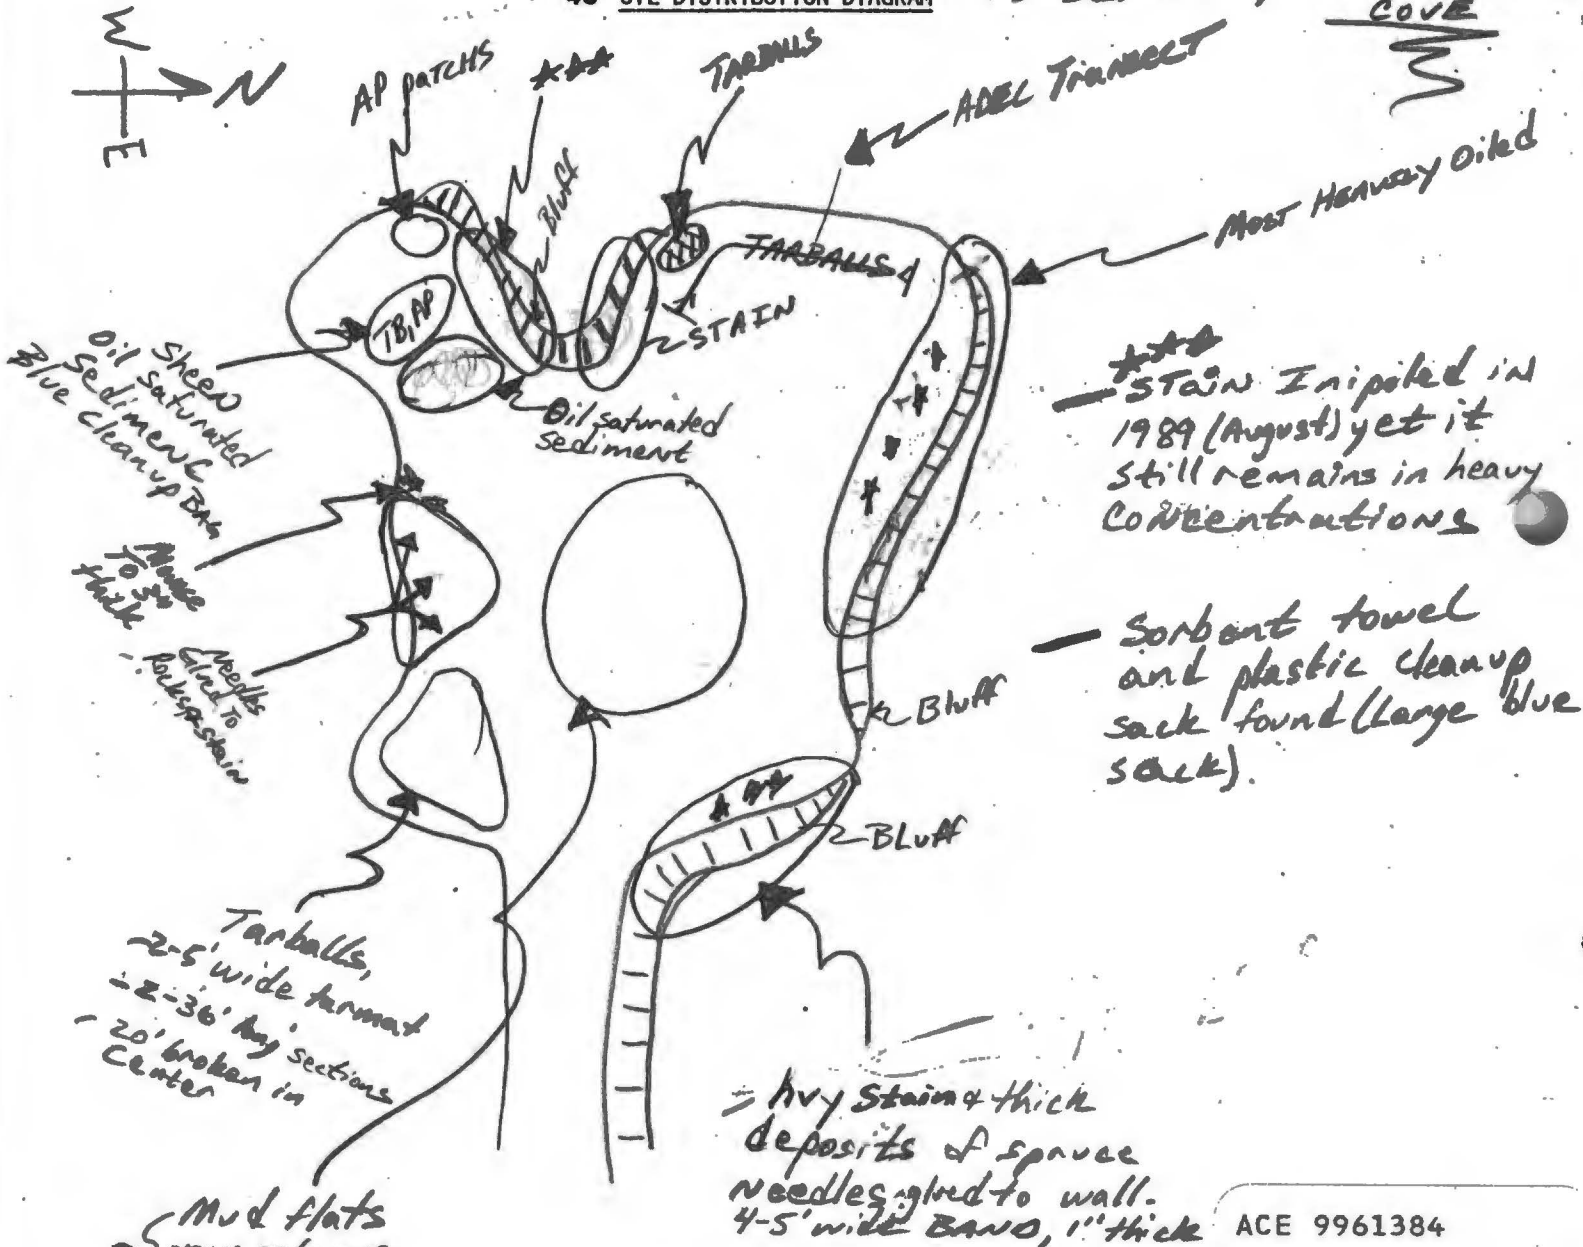 OIL DISTRIBUTION DIAGRAM
COVE
W
N
E
AP patchs
★★★
TARBALLS
ADEC Transect
Most Heavily Oiled
Bluff
TARBALLS
STAIN
TB, AP
Oil saturated
sediment
Sheen
Oil saturated
Sediment
Blue cleanup BAG
thick
Needles
Glued To
Rocks, stain
★★★
- STAIN Inipoled in
1989 (August) yet it
still remains in heavy
Concentrations
- Sorbent towel
and plastic cleanup
sack found (Large blue
sack).
Bluff
BLuff
Tarballs,
-2-5' wide tarmat
-2-36' long sections
- 20' broken in
Center
Mud flats
- hvy Stain & thick
deposits of spruce
Needles glued to wall.
4-5' wide BAND, 1" thick
ACE 9961384